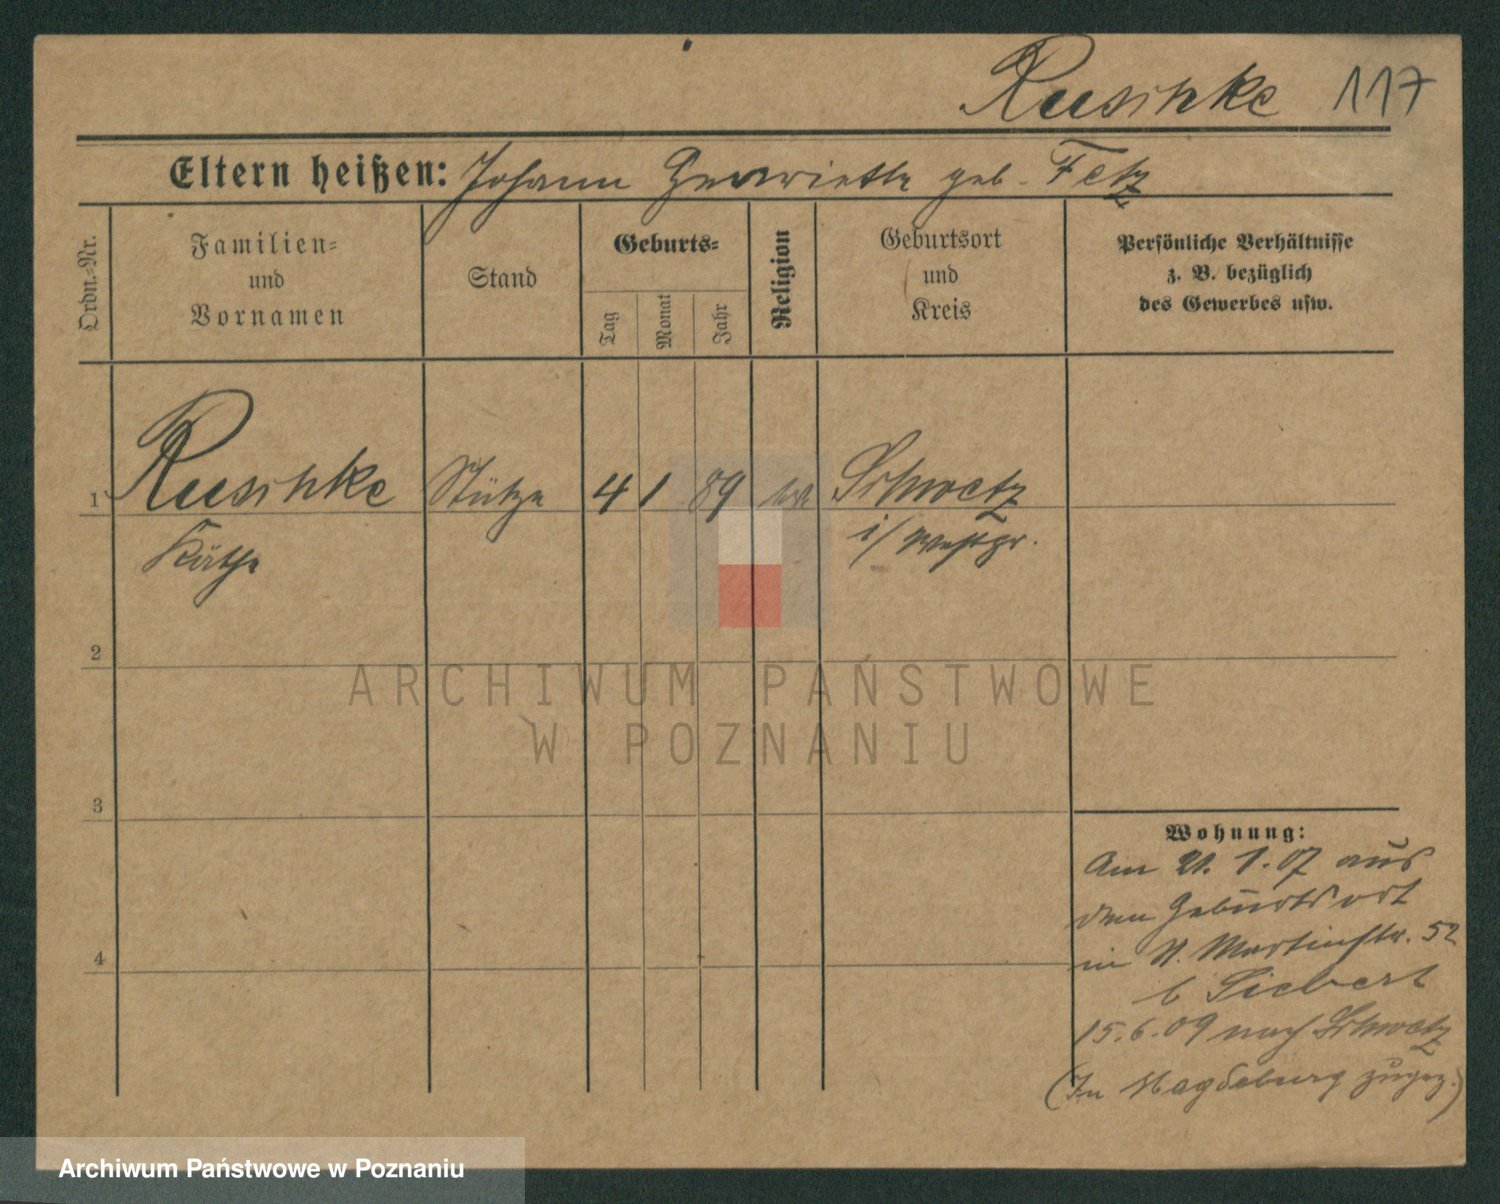 Ruschke 117
Eltern heißen: Johann Henriette geb. Fetz
Ordn.-Nr.
Familien-
und
Vornamen
Stand
Geburts-
Tag
Monat
Jahr
Religion
Geburtsort
und
Kreis
Persönliche Verhältnisse
z. B. bezüglich
des Gewerbes usw.
1 Ruschke Stütze 4 1 89 Schwetz
Käthe i/ Westpr.
2
3
4
Wohnung:
Am 21. 1. 07 aus
dem Geburtsort
in St. Martinstr. 52
b Siebert
15. 6. 09 nach Schwetz
(In Magdeburg zugez.)
ARCHIWUM PAŃSTWOWE
W POZNANIU
Archiwum Państwowe w Poznaniu